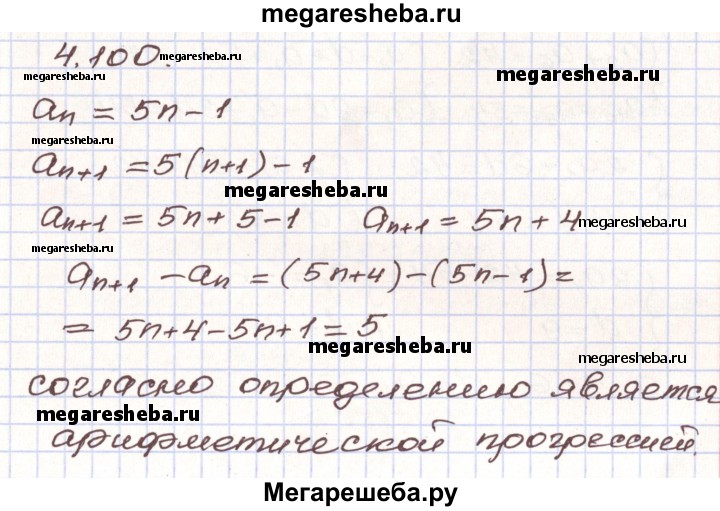 megaresheba.ru
4.100. megaresheba.ru
megaresheba.ru megaresheba.ru
aₙ = 5n - 1
megaresheba.ru
aₙ₊₁ = 5(n+1) - 1
megaresheba.ru
aₙ₊₁ = 5n + 5 - 1 aₙ₊₁ = 5n + 4 megaresheba.ru
megaresheba.ru
aₙ₊₁ - aₙ = (5n+4) - (5n-1) =
= 5n+4-5n+1 = 5
megaresheba.ru megaresheba.ru
согласно определению является
megaresheba.ru
арифметической прогрессией.
Мегарешеба.ру